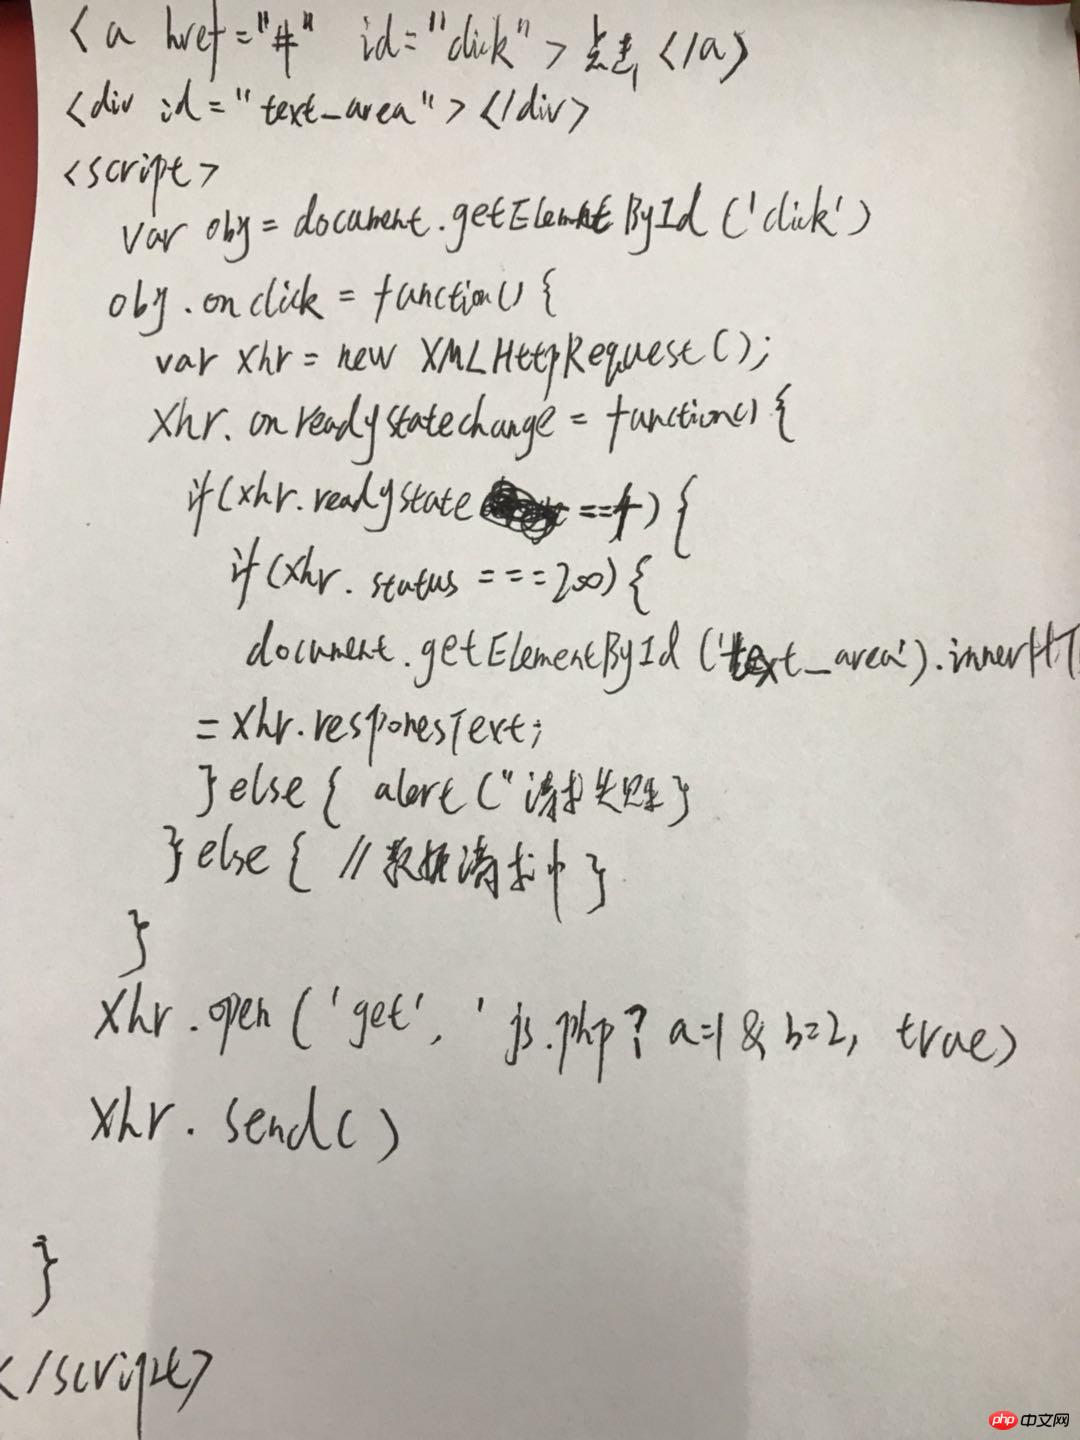 <a href="#" id="click">点击</a>
<div id="text_area"></div>
<script>
var obj = document.getElementById('click')
obj.onclick = function(){
var xhr = new XMLHttpRequest();
xhr.onreadystatechange = function(){
if(xhr.readystate ==4){
if(xhr.status ===200){
document.getElementById('text_area').innerHT
=xhr.responesText;
}else{ alert("请求失败}
}else{ //数据请求中}
}
xhr.open('get', 'js.php?a=1&b=2, true)
xhr.send()
}
</script>
php 中文网